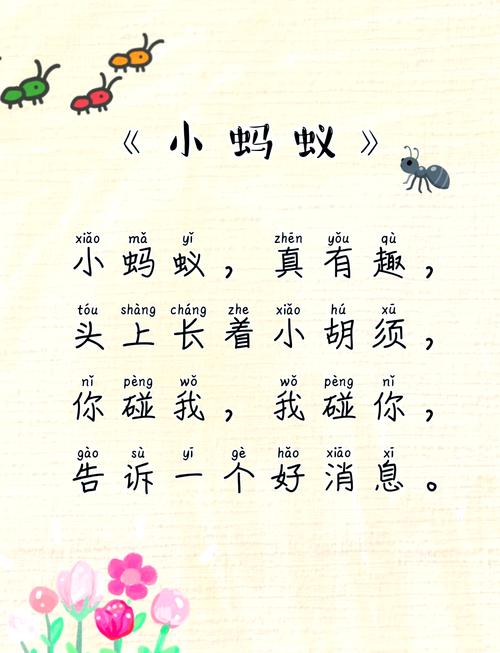 《小蚂蚁》
xiǎo mǎ yǐ zhēn yǒu qù
小蚂蚁，真有趣，
tóu shàng cháng zhe xiǎo hú xū
头上长着小胡须，
nǐ pèng wǒ wǒ pèng nǐ
你碰我，我碰你，
gào sù yī gè hǎo xiāo xī
告诉一个好消息。